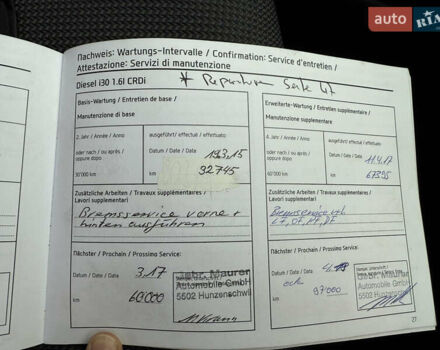 auto RIA
Nachweis: Wartungs-Intervalle / Confirmation: Service d'entretien /
Attestazione: Servizi di manutenzione
Diesel i30 1.6l CRDi
* Reparatur Seite 47
Basis-Wartung / Entretien de base /
Manutenzione di base
2. Jahr / Année / Anno
oder nach / ou après /
oppure dopo
30'000 km
ausgeführt / effectué / effettuato:
Datum / Date / Data 19.3.15
km 32745
Zusätzliche Arbeiten / Travaux supplémentaires /
Lavori supplementari
Bremsservice vorne +
hinten ausführen
Nächster / Prochain / Prossimo Service:
Datum / Date / Data 3.17
km 60000
Gebr. Maurer
Automobile GmbH
5502 Hunzenschwil
Erweiterte-Wartung / Entretien supplémentaire /
Manutenzione supplementare
4. Jahr / Année / Anno
oder nach / ou après /
oppure dopo
60'000 km
ausgeführt / effectué / effettuato:
Datum / Date / Data 11.4.17
km 67395
Zusätzliche Arbeiten / Travaux supplémentaires /
Lavori supplementari
Bremsservice
Nächster / Prochain / Prossimo Service:
Datum / Date / Data
km 97000
Gebr. Maurer
Automobile GmbH
5502 Hunzenschwil
27